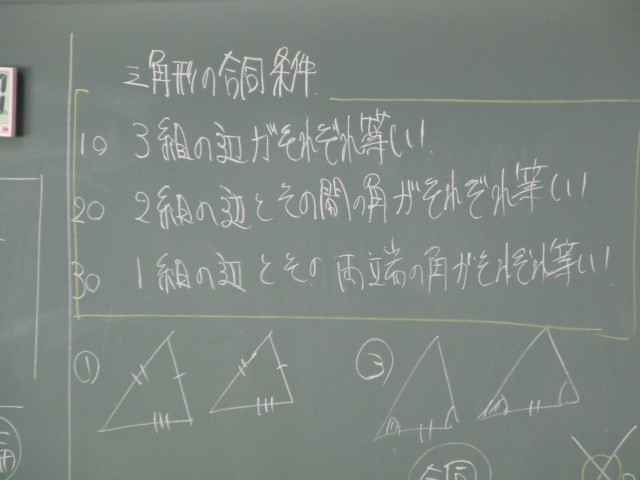 三角形の合同条件
1° 3組の辺がそれぞれ等しい.
2° 2組の辺とその間の角がそれぞれ等しい
3° 1組の辺とその両端の角がそれぞれ等しい
① ③
合同